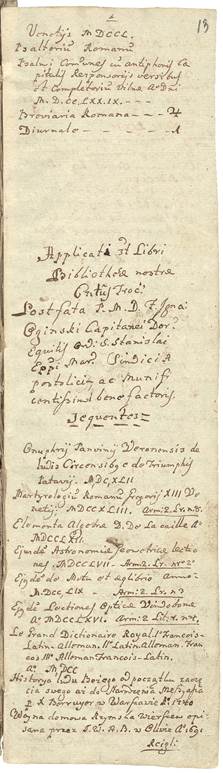 13
Venetijs MDCCL.
Psalteriũ Romanũ
Psalmi Comũnes cũ antiphonis Ca
pitulis Responsorijs versibus
et Completoriũ Vilnæ Ao Dni
M.D.CC.LXX.IX. - - -
Breviaria Romana - - - 4
Diurnale - - - - - 1
Applicati st Libri
Bibliothecæ nostræ
Post fata P. M. D. F. Igna
Oginski Capitanei Dor.
Equitis O. D. S. Stanislai
Sindici A
postolici, ac Munifi
centissimi benefactoris.
Sequentes
Onuphrij Panvinij Veronensis de
ludis Circensibus et de Triumphis
Patavij. MDCXLII
Martyrologiũ Romanũ Gregorij XIII Ve
netijs MDCCXLIII. Arm: 2. Lr. n. 8.
Elementa Algebræ D. De la Caille Ao
MDCCLXII.
Ejusdẽ Astronomiæ Geometricæ lectio
nes. MDCCLVII - Arm: 2. Lr. nr 2o
Ejusdẽ de Motu et æqlibrio Anno
M.DCC.LIX - Arm: 2. Lr. n 3
Ejusdẽ Lectiones Opticæ Vindobonæ
Ao MDCCLXVI. Arm: 2. Lit. x. n 4.
Le Grand Dictionaire Royal. Io Francois-
Latin-Alleman. IIo Latin Alleman Fran
cois IIIo Alleman Francois-Latin.
Ao MDCC
Historya Ludu Bożego od początku zaczę
cia swego aż do Narodzenia Messyasza
p X Berruyer w Warszawie Ro 1740
Woyna domowa Rymska Wierszem opi
sana przez
Religii